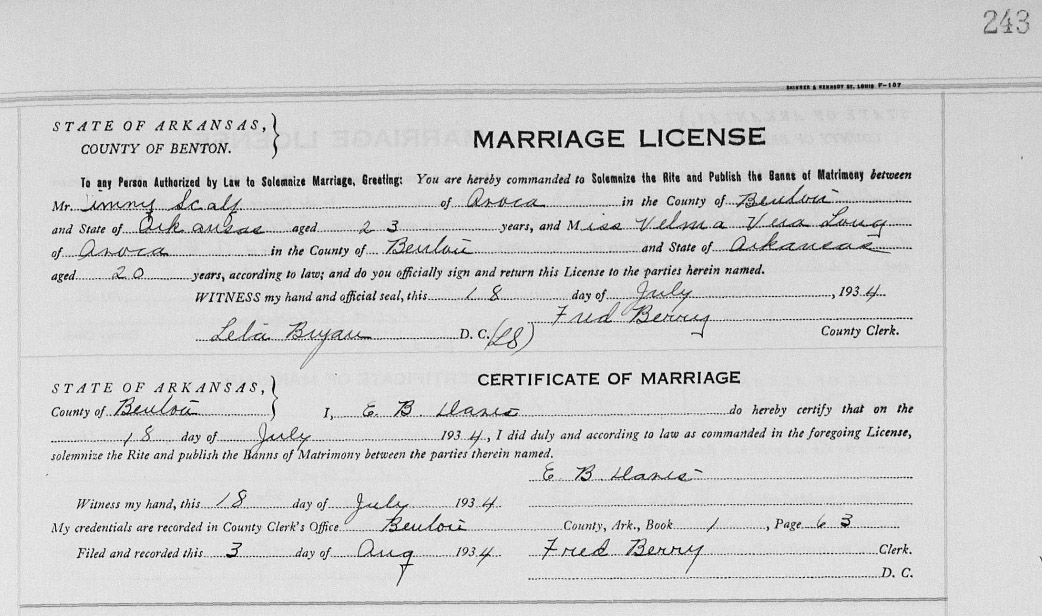 243
SKINNER & KENNEDY ST. LOUIS F-107
STATE OF ARKANSAS,
COUNTY OF BENTON.
MARRIAGE LICENSE
To any Person Authorized by Law to Solemnize Marriage, Greeting: You are hereby commanded to Solemnize the Rite and Publish the Banns of Matrimony between
Mr. Jimmy Scalf of Avoca in the County of Benton
and State of Arkansas aged 23 years, and Miss Velma Vera Long
of Avoca in the County of Benton and State of Arkansas
aged 20 years, according to law; and do you officially sign and return this License to the parties herein named.
WITNESS my hand and official seal, this 18 day of July, 1934
Fred Berry
Lela Bryan D. C. (LS) County Clerk.
CERTIFICATE OF MARRIAGE
STATE OF ARKANSAS,
County of Benton I, E. B. Davis do hereby certify that on the
18 day of July 1934, I did duly and according to law as commanded in the foregoing License,
solemnize the Rite and publish the Banns of Matrimony between the parties therein named.
E B Davis
Witness my hand, this 18 day of July 1934
My credentials are recorded in County Clerk's Office Benton County, Ark., Book 1, Page 63
Filed and recorded this 3 day of Aug 1934 Fred Berry Clerk.
D. C.